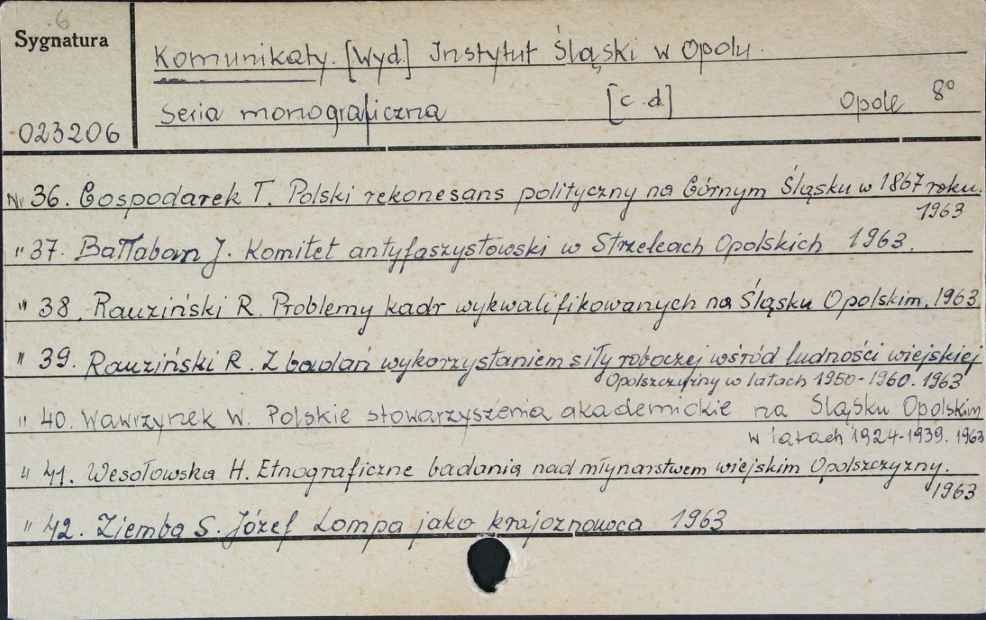 6
Sygnatura
Komunikaty. [Wyd.] Instytut Śląski w Opolu.
023206
Seria monograficzna [c.d.] Opole 8°
Nr 36. Gospodarek T. Polski rekonesans polityczny na Górnym Śląsku w 1867 roku.
1963
" 37. Bałłaban J. Komitet antyfaszystowski w Strzelcach Opolskich 1963.
" 38. Rauziński R. Problemy kadr wykwalifikowanych na Śląsku Opolskim, 1963
" 39. Rauziński R. Z badań wykorzystaniem siły roboczej wśród ludności wiejskiej
Opolszczyzny w latach 1950-1960. 1963
" 40. Wawrzynek W. Polskie stowarzyszenia akademickie na Śląsku Opolskim
w latach 1924-1939. 1963
" 41. Wesołowska H. Etnograficzne badania nad młynarstwem wiejskim Opolszczyzny.
1963
" 42. Ziemba S. Józef Lompa jako krajoznawca 1963